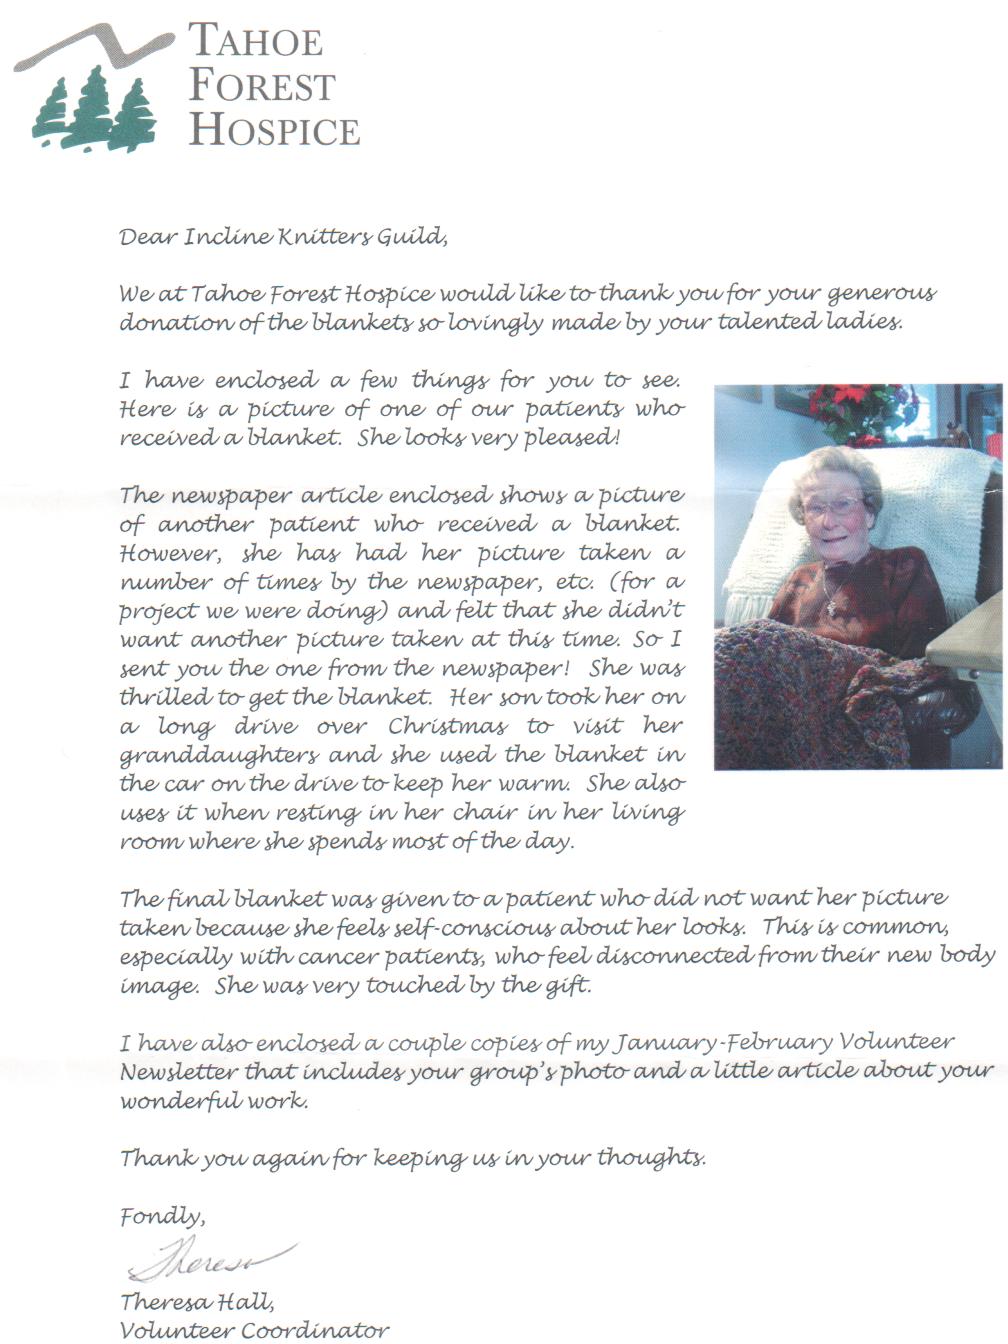 TAHOE
FOREST
HOSPICE
Dear Incline Knitters Guild,
We at Tahoe Forest Hospice would like to thank you for your generous
donation of the blankets so lovingly made by your talented ladies.
I have enclosed a few things for you to see.
Here is a picture of one of our patients who
received a blanket. She looks very pleased!
The newspaper article enclosed shows a picture
of another patient who received a blanket.
However, she has had her picture taken a
number of times by the newspaper, etc. (for a
project we were doing) and felt that she didn't
want another picture taken at this time. So I
sent you the one from the newspaper! She was
thrilled to get the blanket. Her son took her on
a long drive over Christmas to visit her
granddaughters and she used the blanket in
the car on the drive to keep her warm. She also
uses it when resting in her chair in her living
room where she spends most of the day.
The final blanket was given to a patient who did not want her picture
taken because she feels self-conscious about her looks. This is common,
especially with cancer patients, who feel disconnected from their new body
image. She was very touched by the gift.
I have also enclosed a couple copies of my January-February Volunteer
Newsletter that includes your group's photo and a little article about your
wonderful work.
Thank you again for keeping us in your thoughts.
Fondly,
Theresa
Theresa Hall,
Volunteer Coordinator